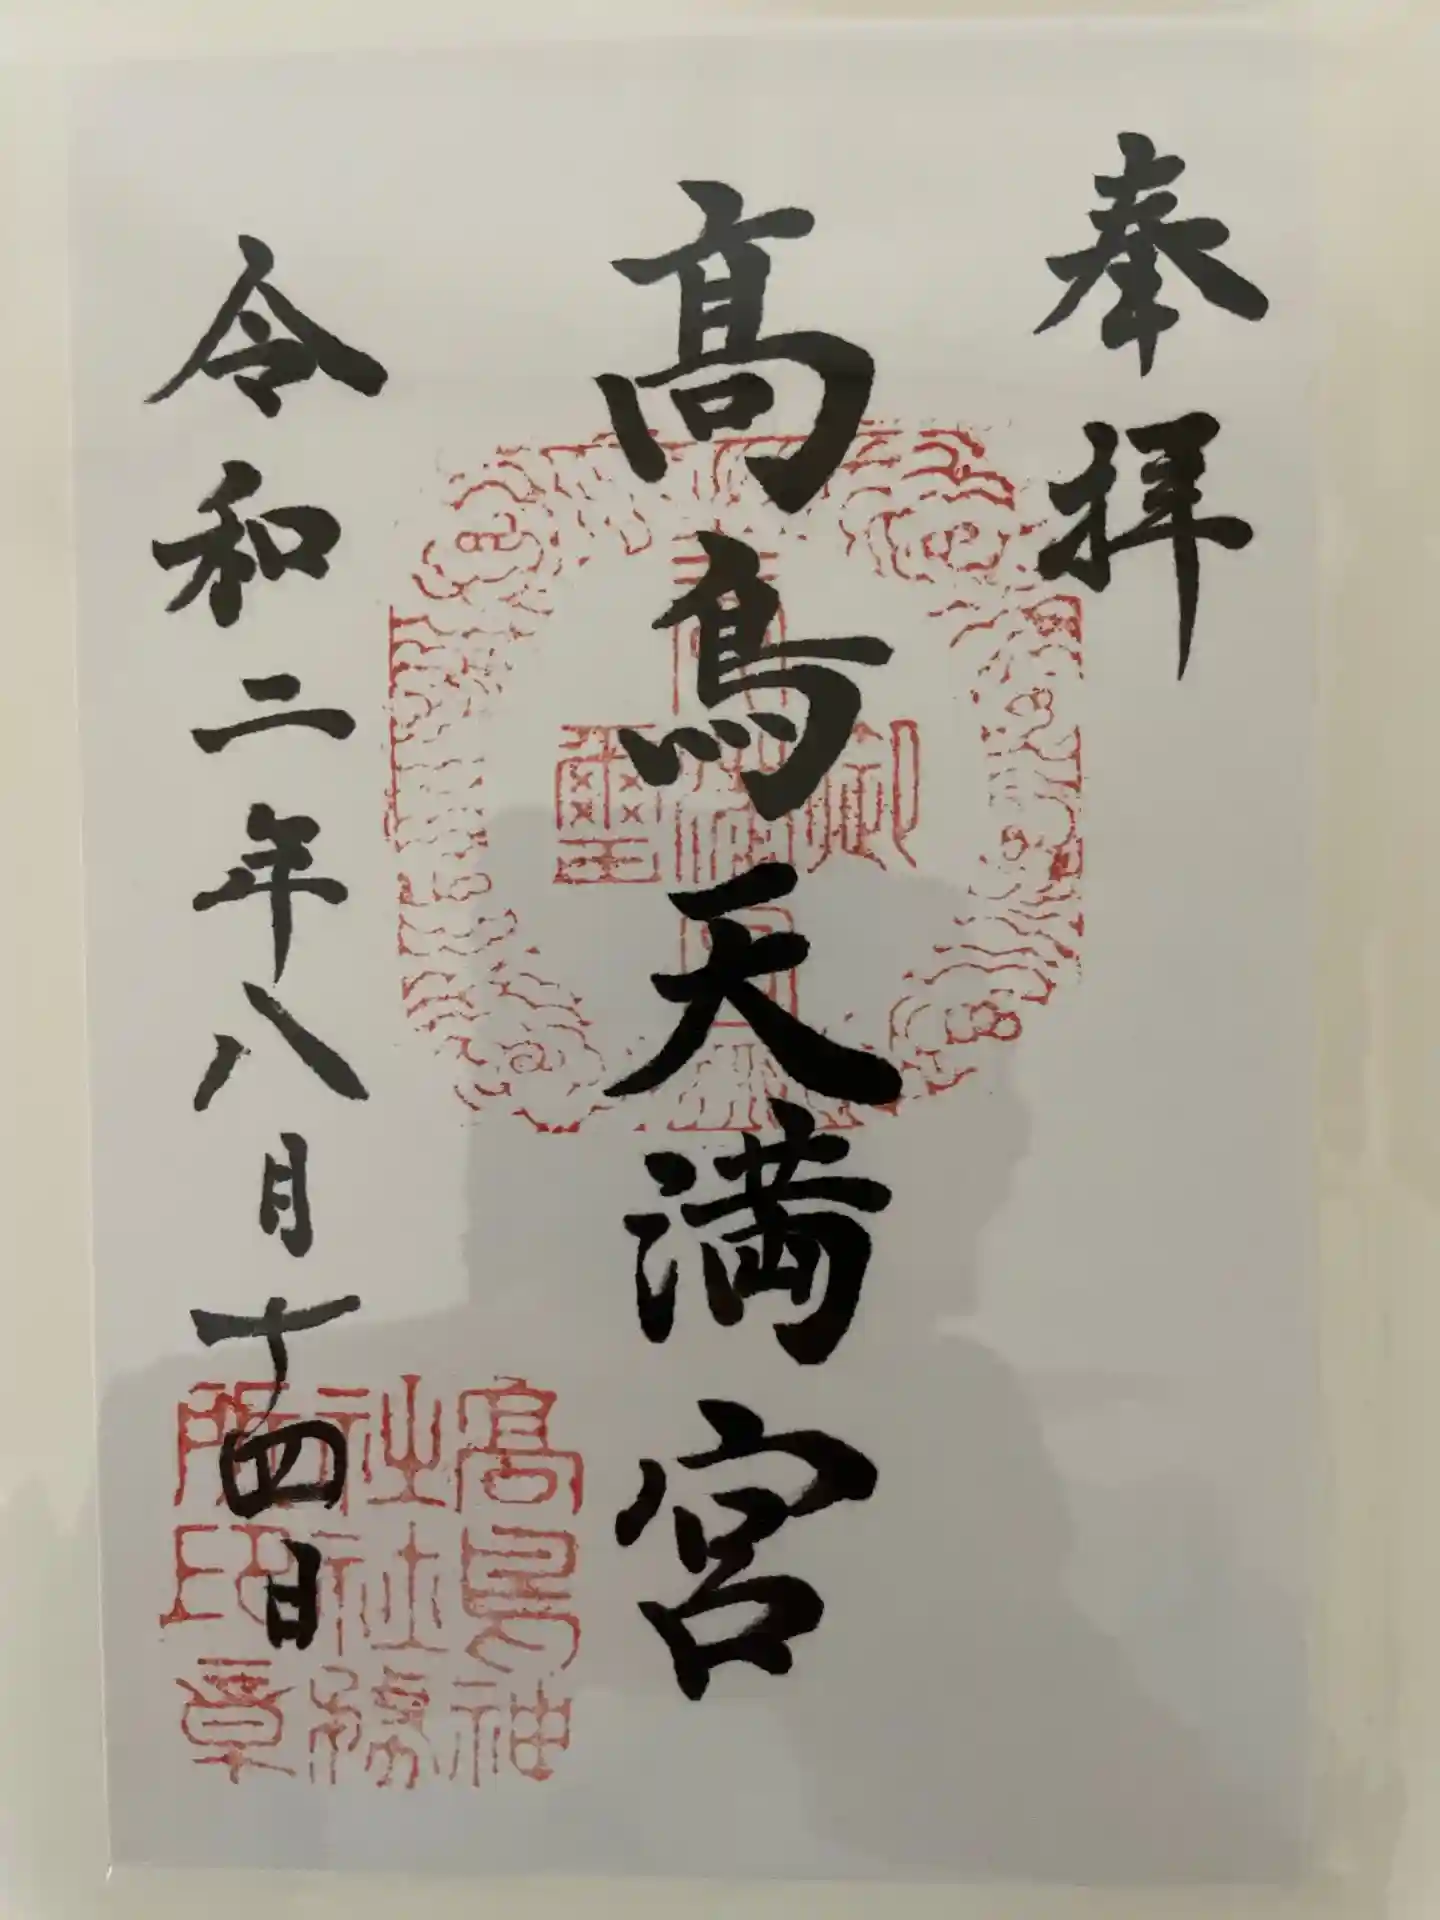 奉拝
髙鳥天満宮
令和二年八月十四日
高鳥神
社社務
所印章